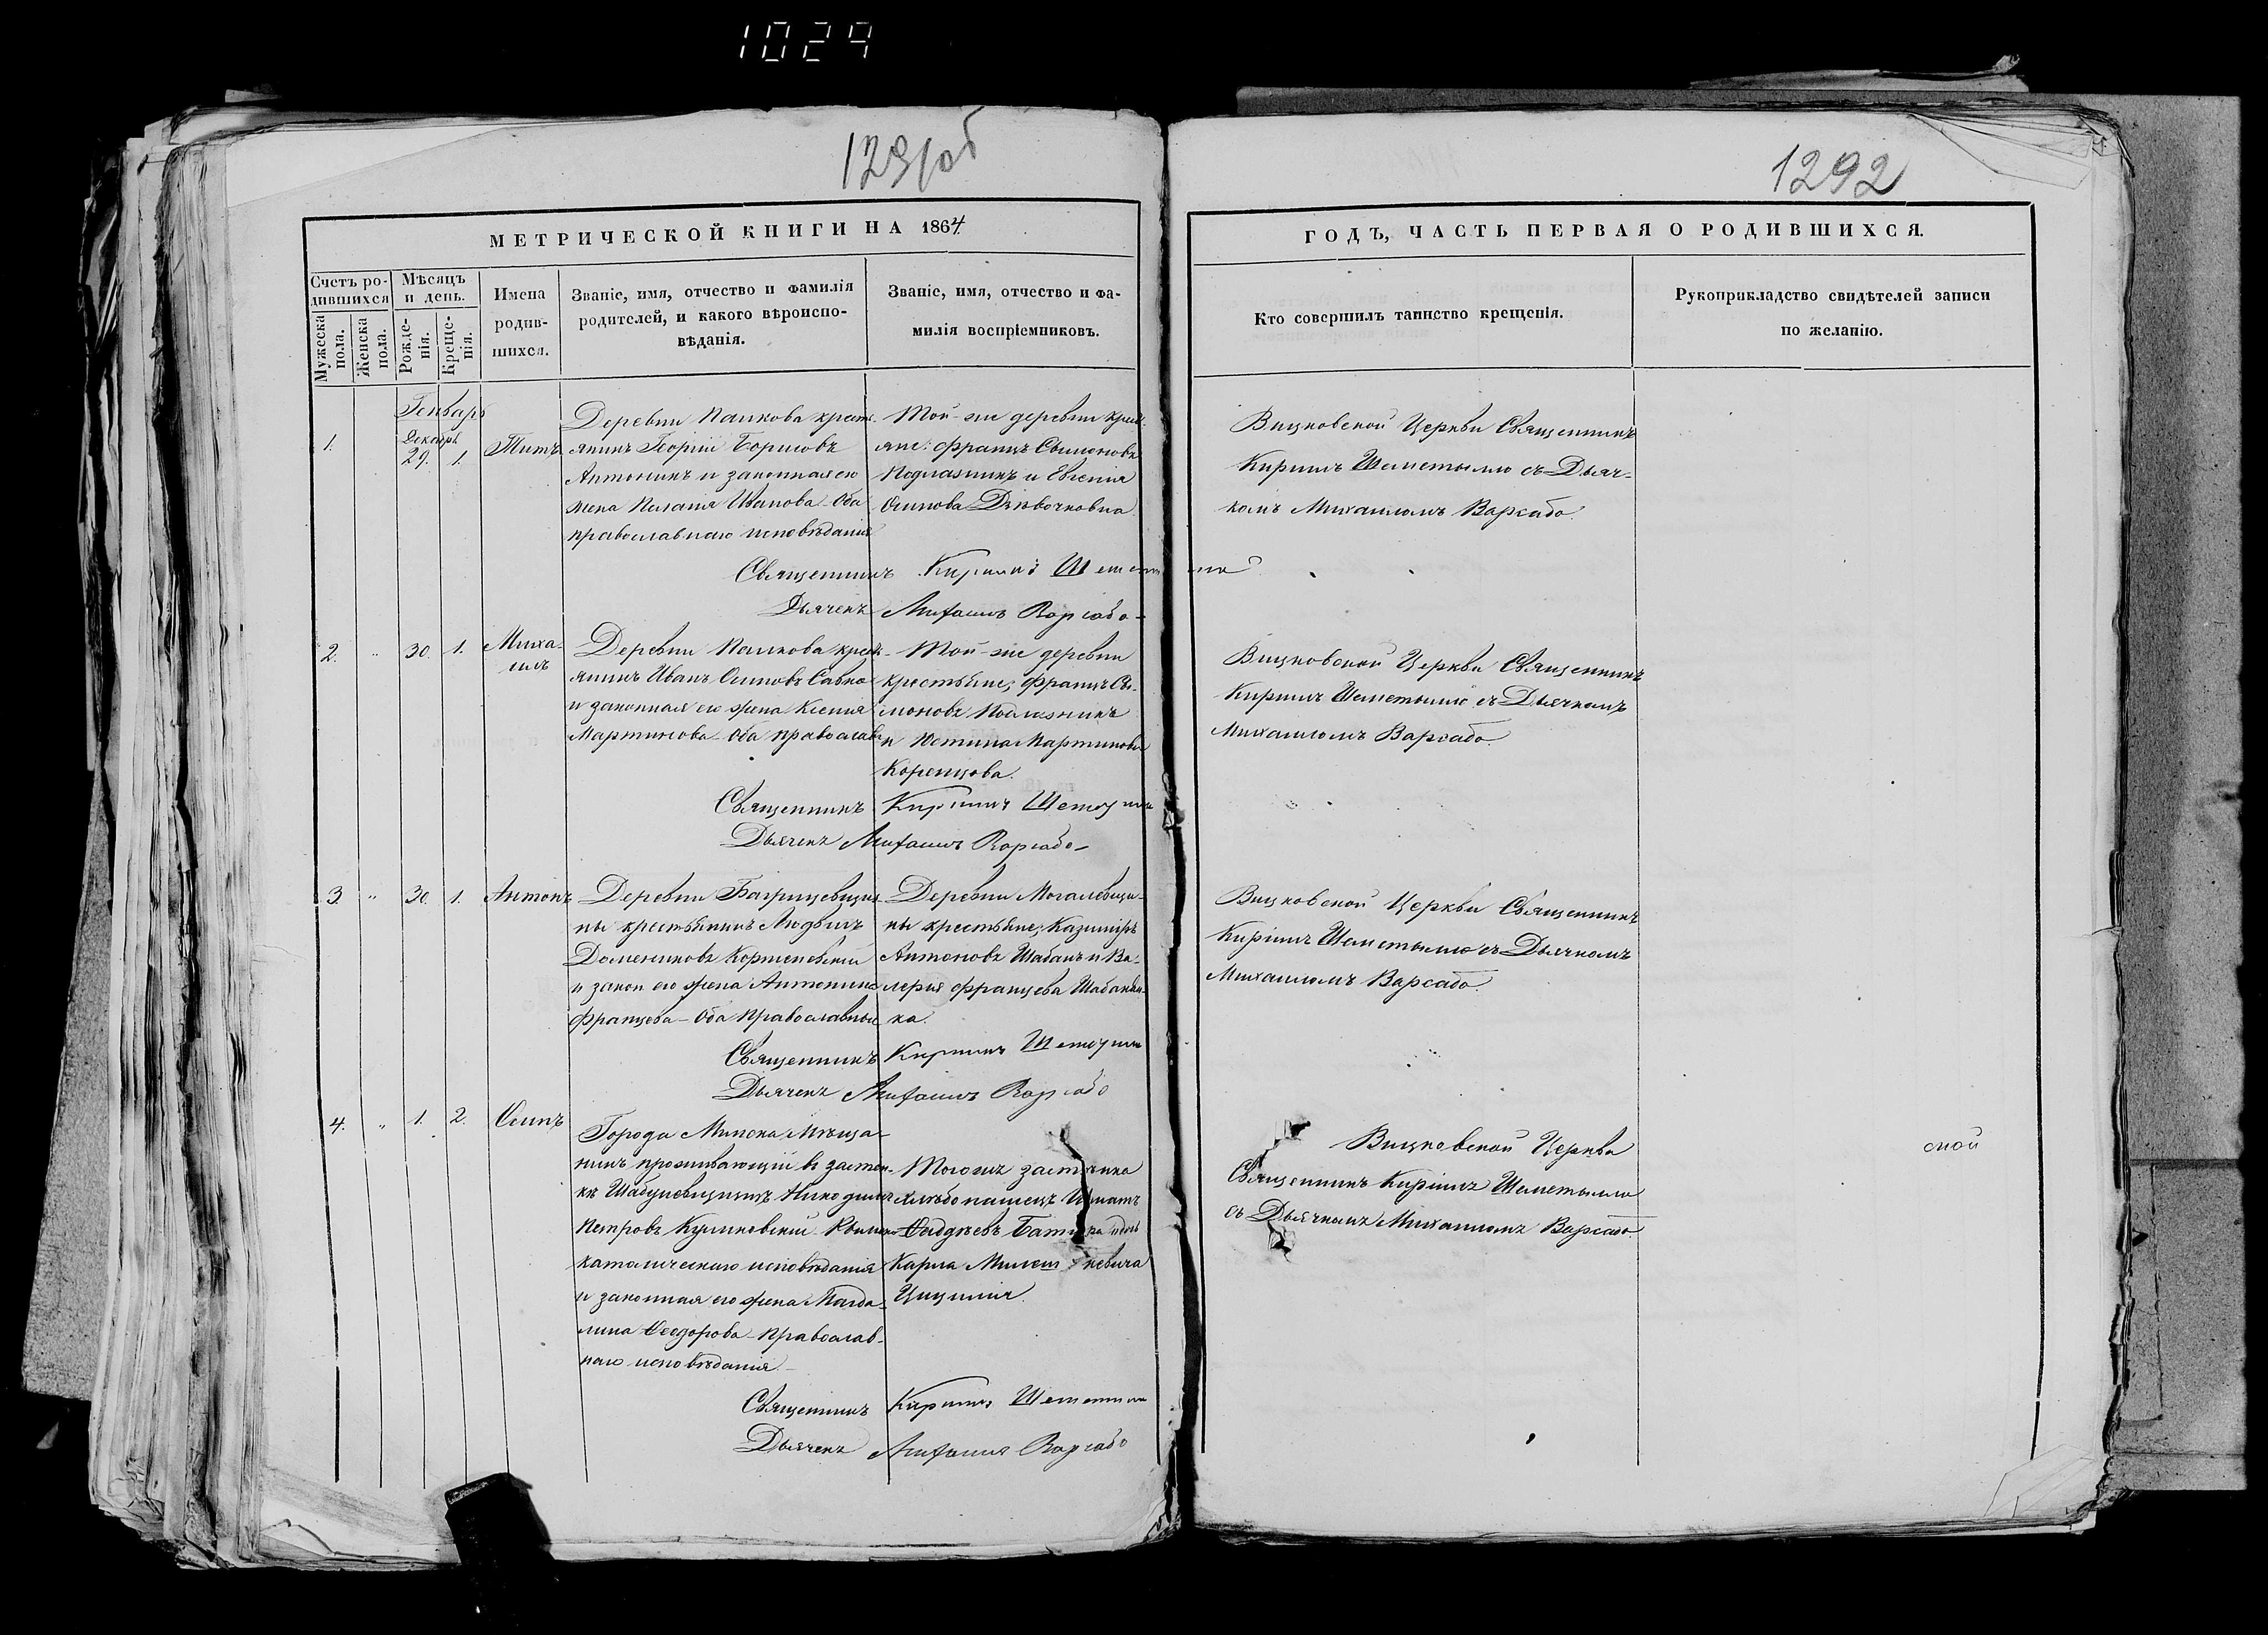 1029
1291об
1292
МЕТРИЧЕСКОЙ КНИГИ НА 1864
ГОДЪ, ЧАСТЬ ПЕРВАЯ О РОДИВШИХСЯ.
Счетъ ро-
дившихся
Мужеска
пола.
Женска
пола.
Мѣсяцъ
и день.
Рожде-
нія.
Креще-
нія.
Имена
родив-
шихся.
Званіе, имя, отчество и фамилія
родителей, и какого вѣроиспо-
вѣданія.
Званіе, имя, отчество и фа-
милія воспріемниковъ.
Кто совершилъ таинство крещенія.
Рукоприкладство свидѣтелей записи
по желанію.
Генварь
Декабрь
1. 29. 1. Титъ
Деревни крест-
янинъ Георгій Борисовъ
Антоникъ и законная его
жена Пелагія Иванова Оба
православнаго исповѣданія
Той-же деревни крест-
яне: Францъ Сымоновъ
Подлазникъ и Евгенія
Осипова
Вицковской Церкви Священникъ
Кириллъ Шеметылло съ Дьяч-
комъ Михаиломъ Варсабо.
Священникъ Кириллъ
Дьячекъ Михаилъ Варсабо
2. " 30. 1. Миха-
илъ
Деревни крест-
янинъ Иванъ Осиповъ Савко
и законная его жена Ксенія
Мартинова Оба православн
Той-же деревни
крестьяне; Францъ Сы-
моновъ Подлазникъ
и Юстина Мартинова
Коренцова.
Вицковской Церкви Священникъ
Кириллъ Шеметылло съ Дьячкомъ
Михаиломъ Варсабо.
Священникъ Кириллъ
Дьячекъ Михаилъ Варсабо
3. " 30. 1. Антонъ
Деревни
ны крестьянинъ Людвигъ
Доминиковъ
и закон его жена Антонина
Францова Оба Православные
Деревни
ны крестьяне; Казимиръ
Антоновъ Шабанъ и Ва-
лерія Францева
ка.
Вицковской Церкви Священникъ
Кириллъ Шеметылло съ Дьячкомъ
Михаиломъ Варсабо.
Священникъ Кириллъ
Дьячекъ Михаилъ Варсабо
4. " 1. 2. Осипъ
Города Минска Мѣща-
нинъ проживающій въ застен-
кѣ Никодимъ
Петровъ Куликовскій Римско
католическаго исповѣданія
и законная его жена Магда-
лина Феодорова православ-
наго исповѣданія
Тогоже застѣнка
хлѣбопашецъ Игнатъ
Фадѣевъ
Карла
Цицилія
Вицковской Церкви
Священникъ Кириллъ Шеметылло
съ Дьячкомъ Михаиломъ Варсабо
ской
Священникъ Кириллъ
Дьячекъ Михаилъ Варсабо